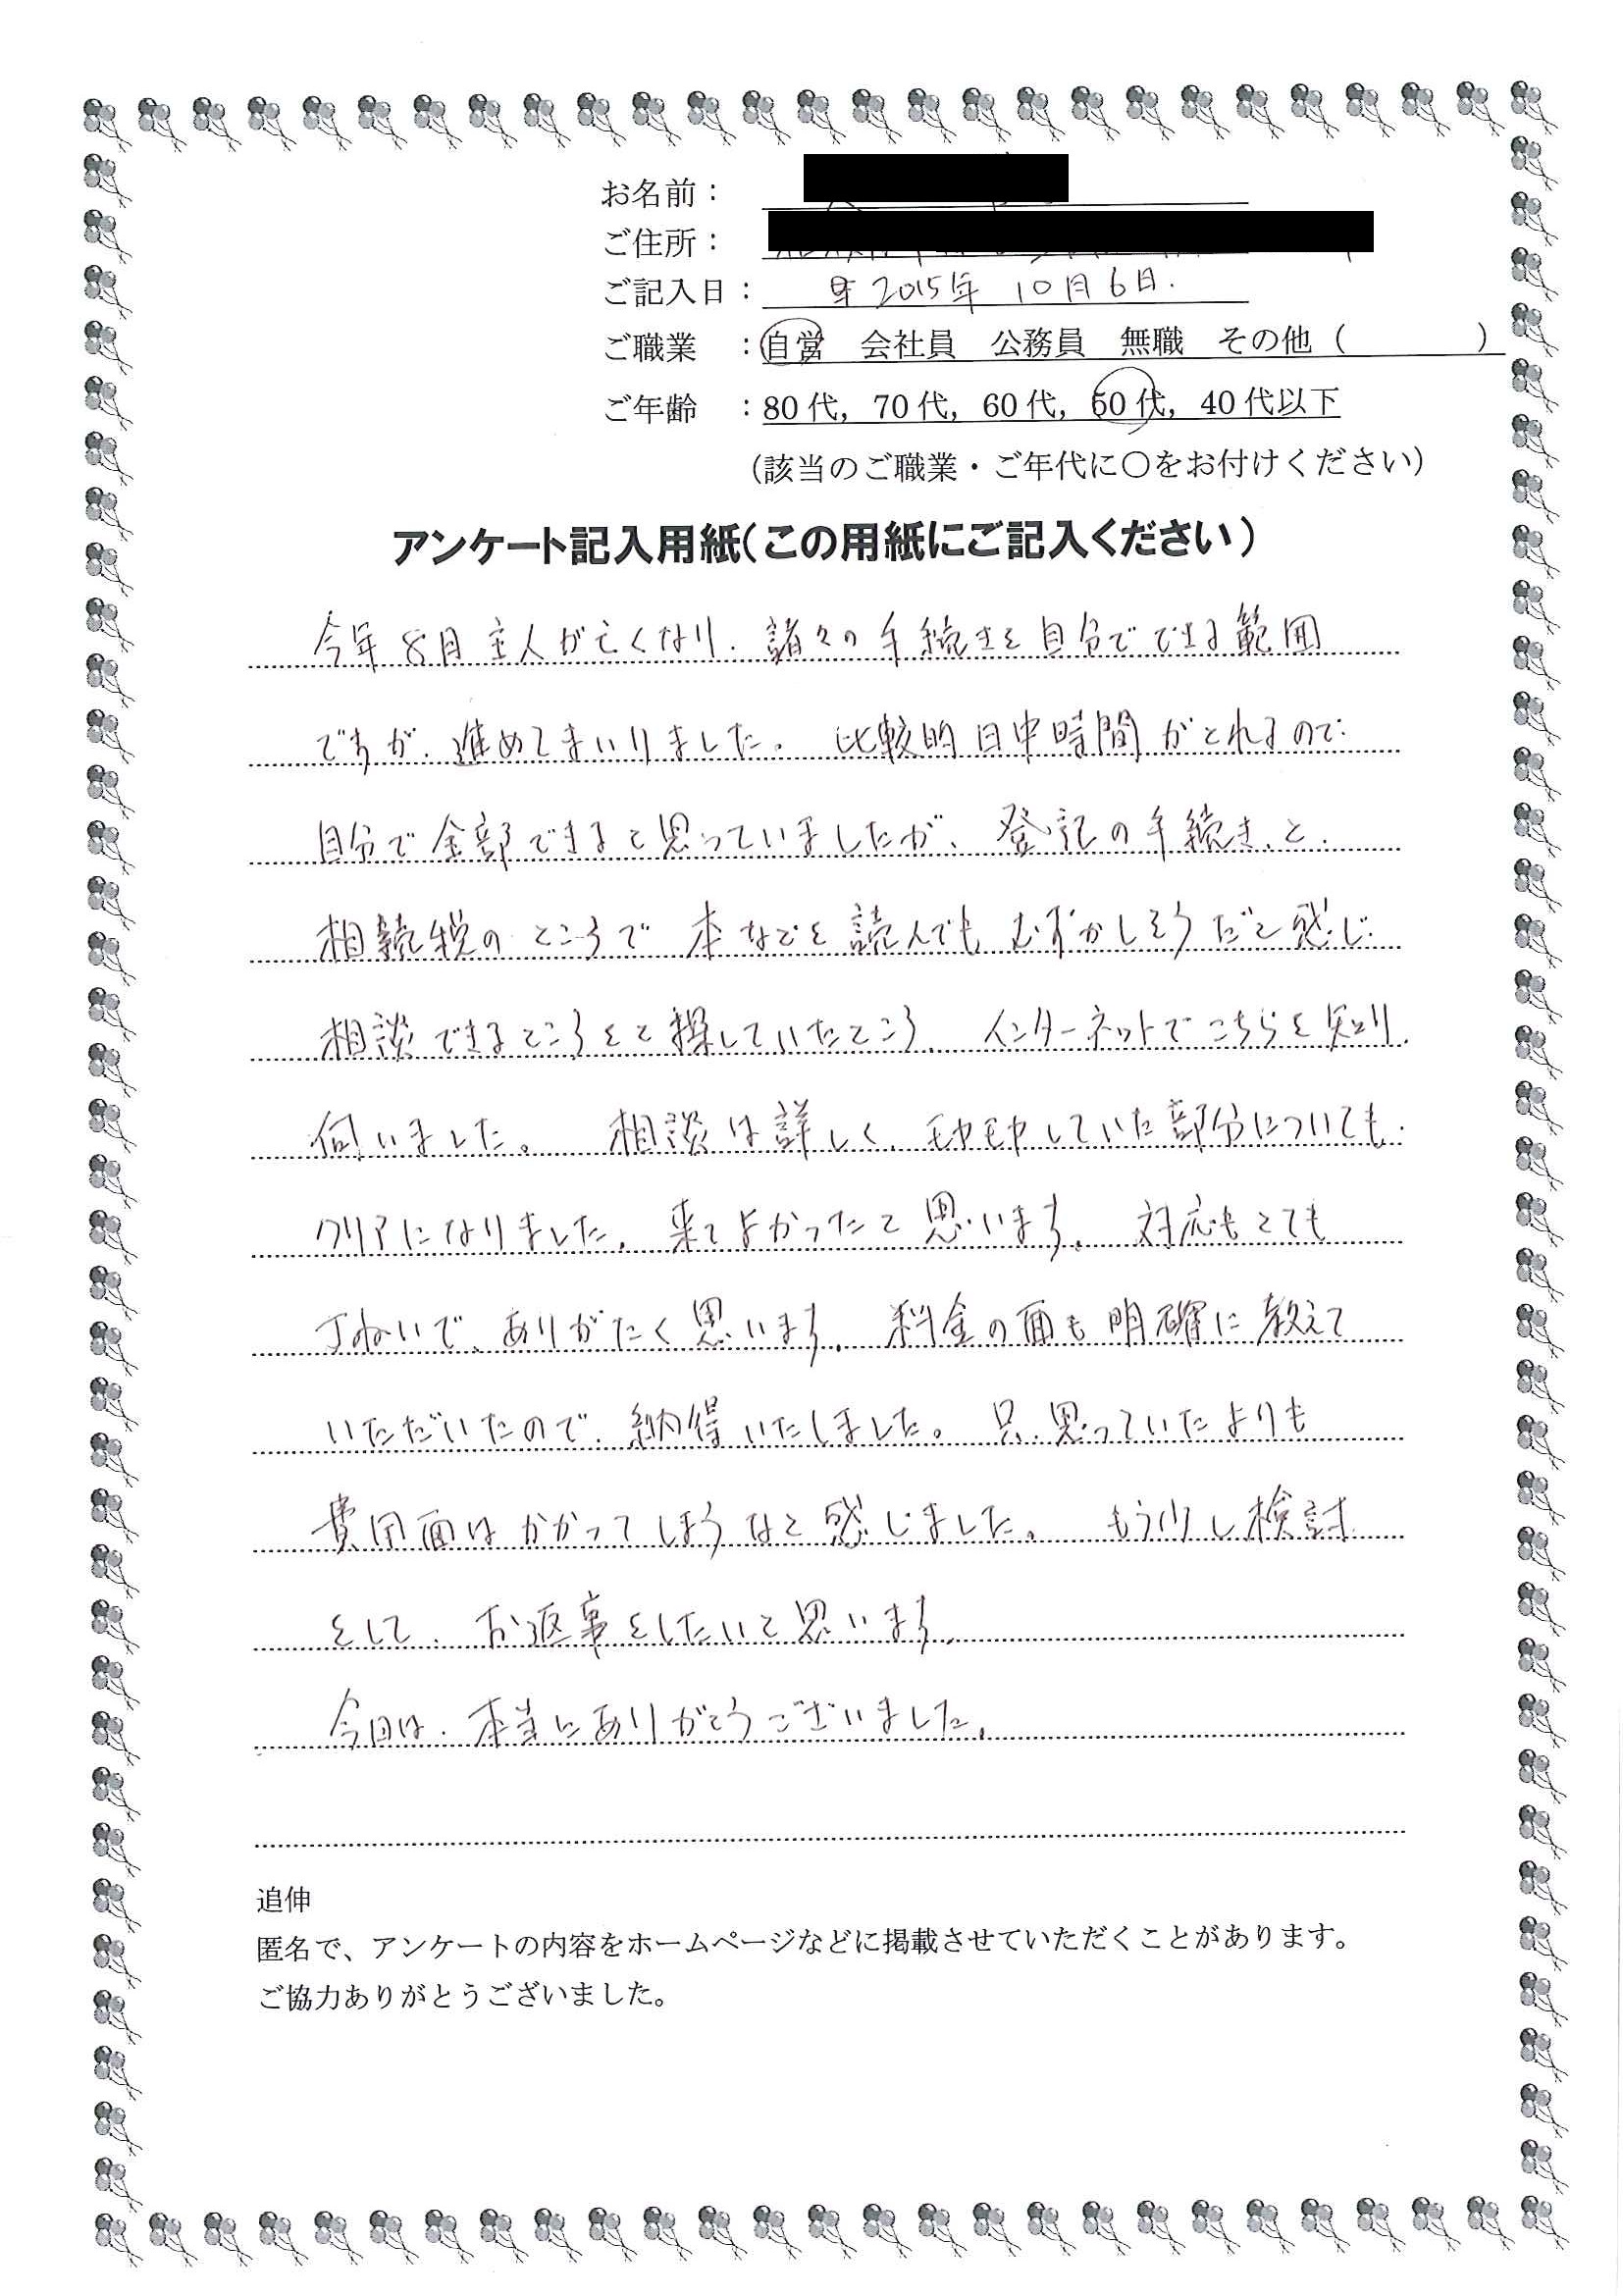 お名前：
ご住所：
ご記入日： 年 2015年 10月6日.
ご職業 ：自営 会社員 公務員 無職 その他（ ）
ご年齢 ：80代，70代，60代，50代，40代以下
（該当のご職業・ご年代に〇をお付けください）
アンケート記入用紙（この用紙にご記入ください）
今年8月主人が亡くなり、諸々の手続きを自分でできる範囲
ですが、進めてまいりました。 比較的日中時間がとれるので
自分で全部できると思っていましたが、登記の手続きと、
相続税のところで本などを読んでもむずかしそうだと感じ
相談できるところをと探していたところ、インターネットでこちらを知り、
伺いました。 相談は詳しく、モヤモヤしていた部分についても
クリアになりました。来てよかったと思います。対応もとても
丁ねいで、ありがたく思います。料金の面も明確に教えて
いただいたので、納得いたしました。只、思っていたよりも
費用面はかかってしまうなと感じました。 もう少し検討
をして、お返事をしたいと思います。
今回は、本当にありがとうございました。
追伸
匿名で、アンケートの内容をホームページなどに掲載させていただくことがあります。
ご協力ありがとうございました。